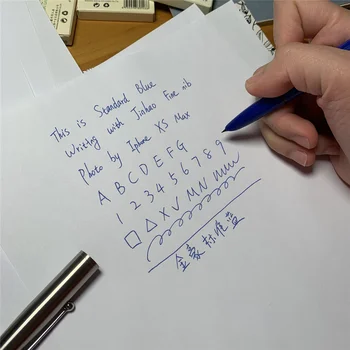 This is Standard Blue
Writing with Jinhao Fine nib
Photo by Iphone XS Max
A B C D E F G
1 2 3 4 5 6 7 8 9
□ △ X V M N mm
金豪标准蓝